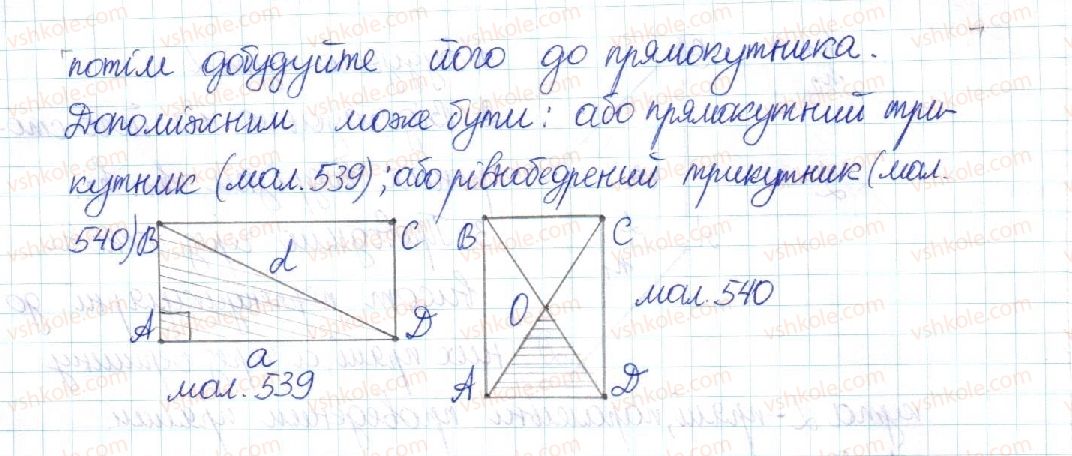 потім добудуйте його до прямокутника.
Допоміжним може бути: або прямокутний три-
кутник (мал. 539); або рівнобедрений трикутник (мал.
540)
B C
d
A D
a
мал. 539
B C
O
A D
мал. 540